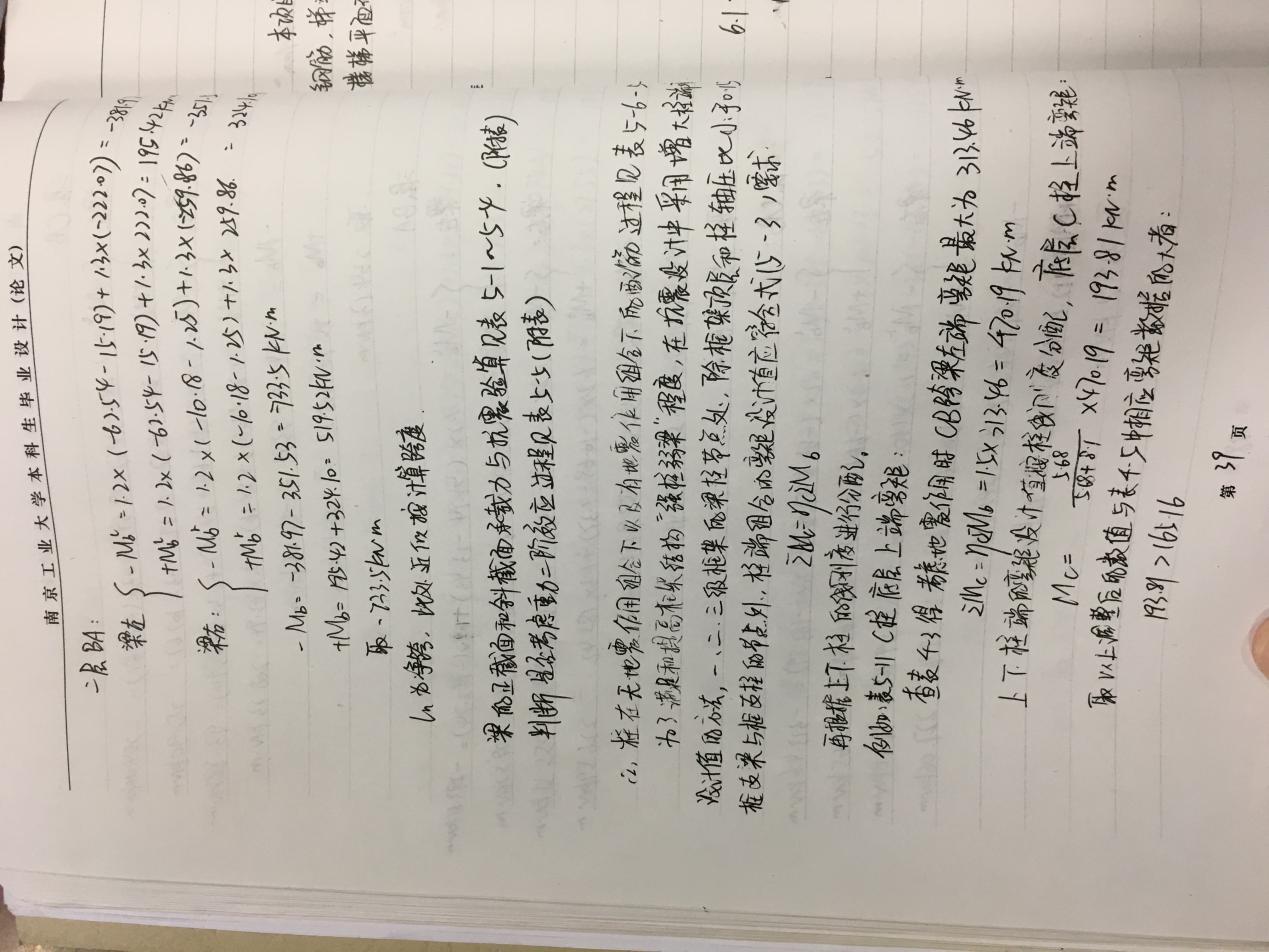 本项目
钢筋,梯
楼梯平面
6.1
南京工业大学本科生毕业设计(论文)
二层BA:
梁左 { -Mb = 1.2×(-62.54-15.19)+1.3×(-222.07) = -381.9
+Mb = 1.2×(-62.54-15.19)+1.3×222.07 = 195.42kN·m
梁右: { -Mb = 1.2×(-10.8-1.25)+1.3×(-259.86) = -351.
+Mb = 1.2×(-10.8-1.25)+1.3×259.86 = 324.1
-Mb = -381.97-351.53 = -733.5kN·m
+Mb = 195.42+324.10 = 519.52kN·m
取 -733.5kN·m
ln为净跨,此处近似按计算跨度
梁的正截面和斜截面承载力与抗震验算见表5-1~5-4.(附表)
判断是否考虑重力二阶效应过程见表5-5(附表)
(2). 柱在无地震作用组合下以及有地震作用组合下的配筋过程见表5-6-5
为了满足和提高框架结构"强柱弱梁"程度,在抗震设计中采用增大柱端
设计值的方法,一、二、三级框架的梁柱节点处,除框架顶层和柱轴压比小于0.15
框支梁与框支柱的节点外,柱端组合的弯矩设计值应符合式(5-3)要求:
ΣMc = ηcΣMb
再根据上下柱的线刚度进行分配。
例如:表5-11 C柱底层上端弯矩:
查表4-3得 考虑地震作用时CB跨梁左端弯矩最大为313.46kN·m
ΣMc = ηcMb = 1.5×313.46 = 470.19kN·m
上下柱端的弯矩设计值按柱线刚度分配,底层C柱上端弯矩:
Mc = 5.68/(5.68+8.1) ×470.19 = 193.81kN·m
取以上调整后的数值与表4-5中相应弯矩数据的大者:
193.81 > 165.16
第 39 页